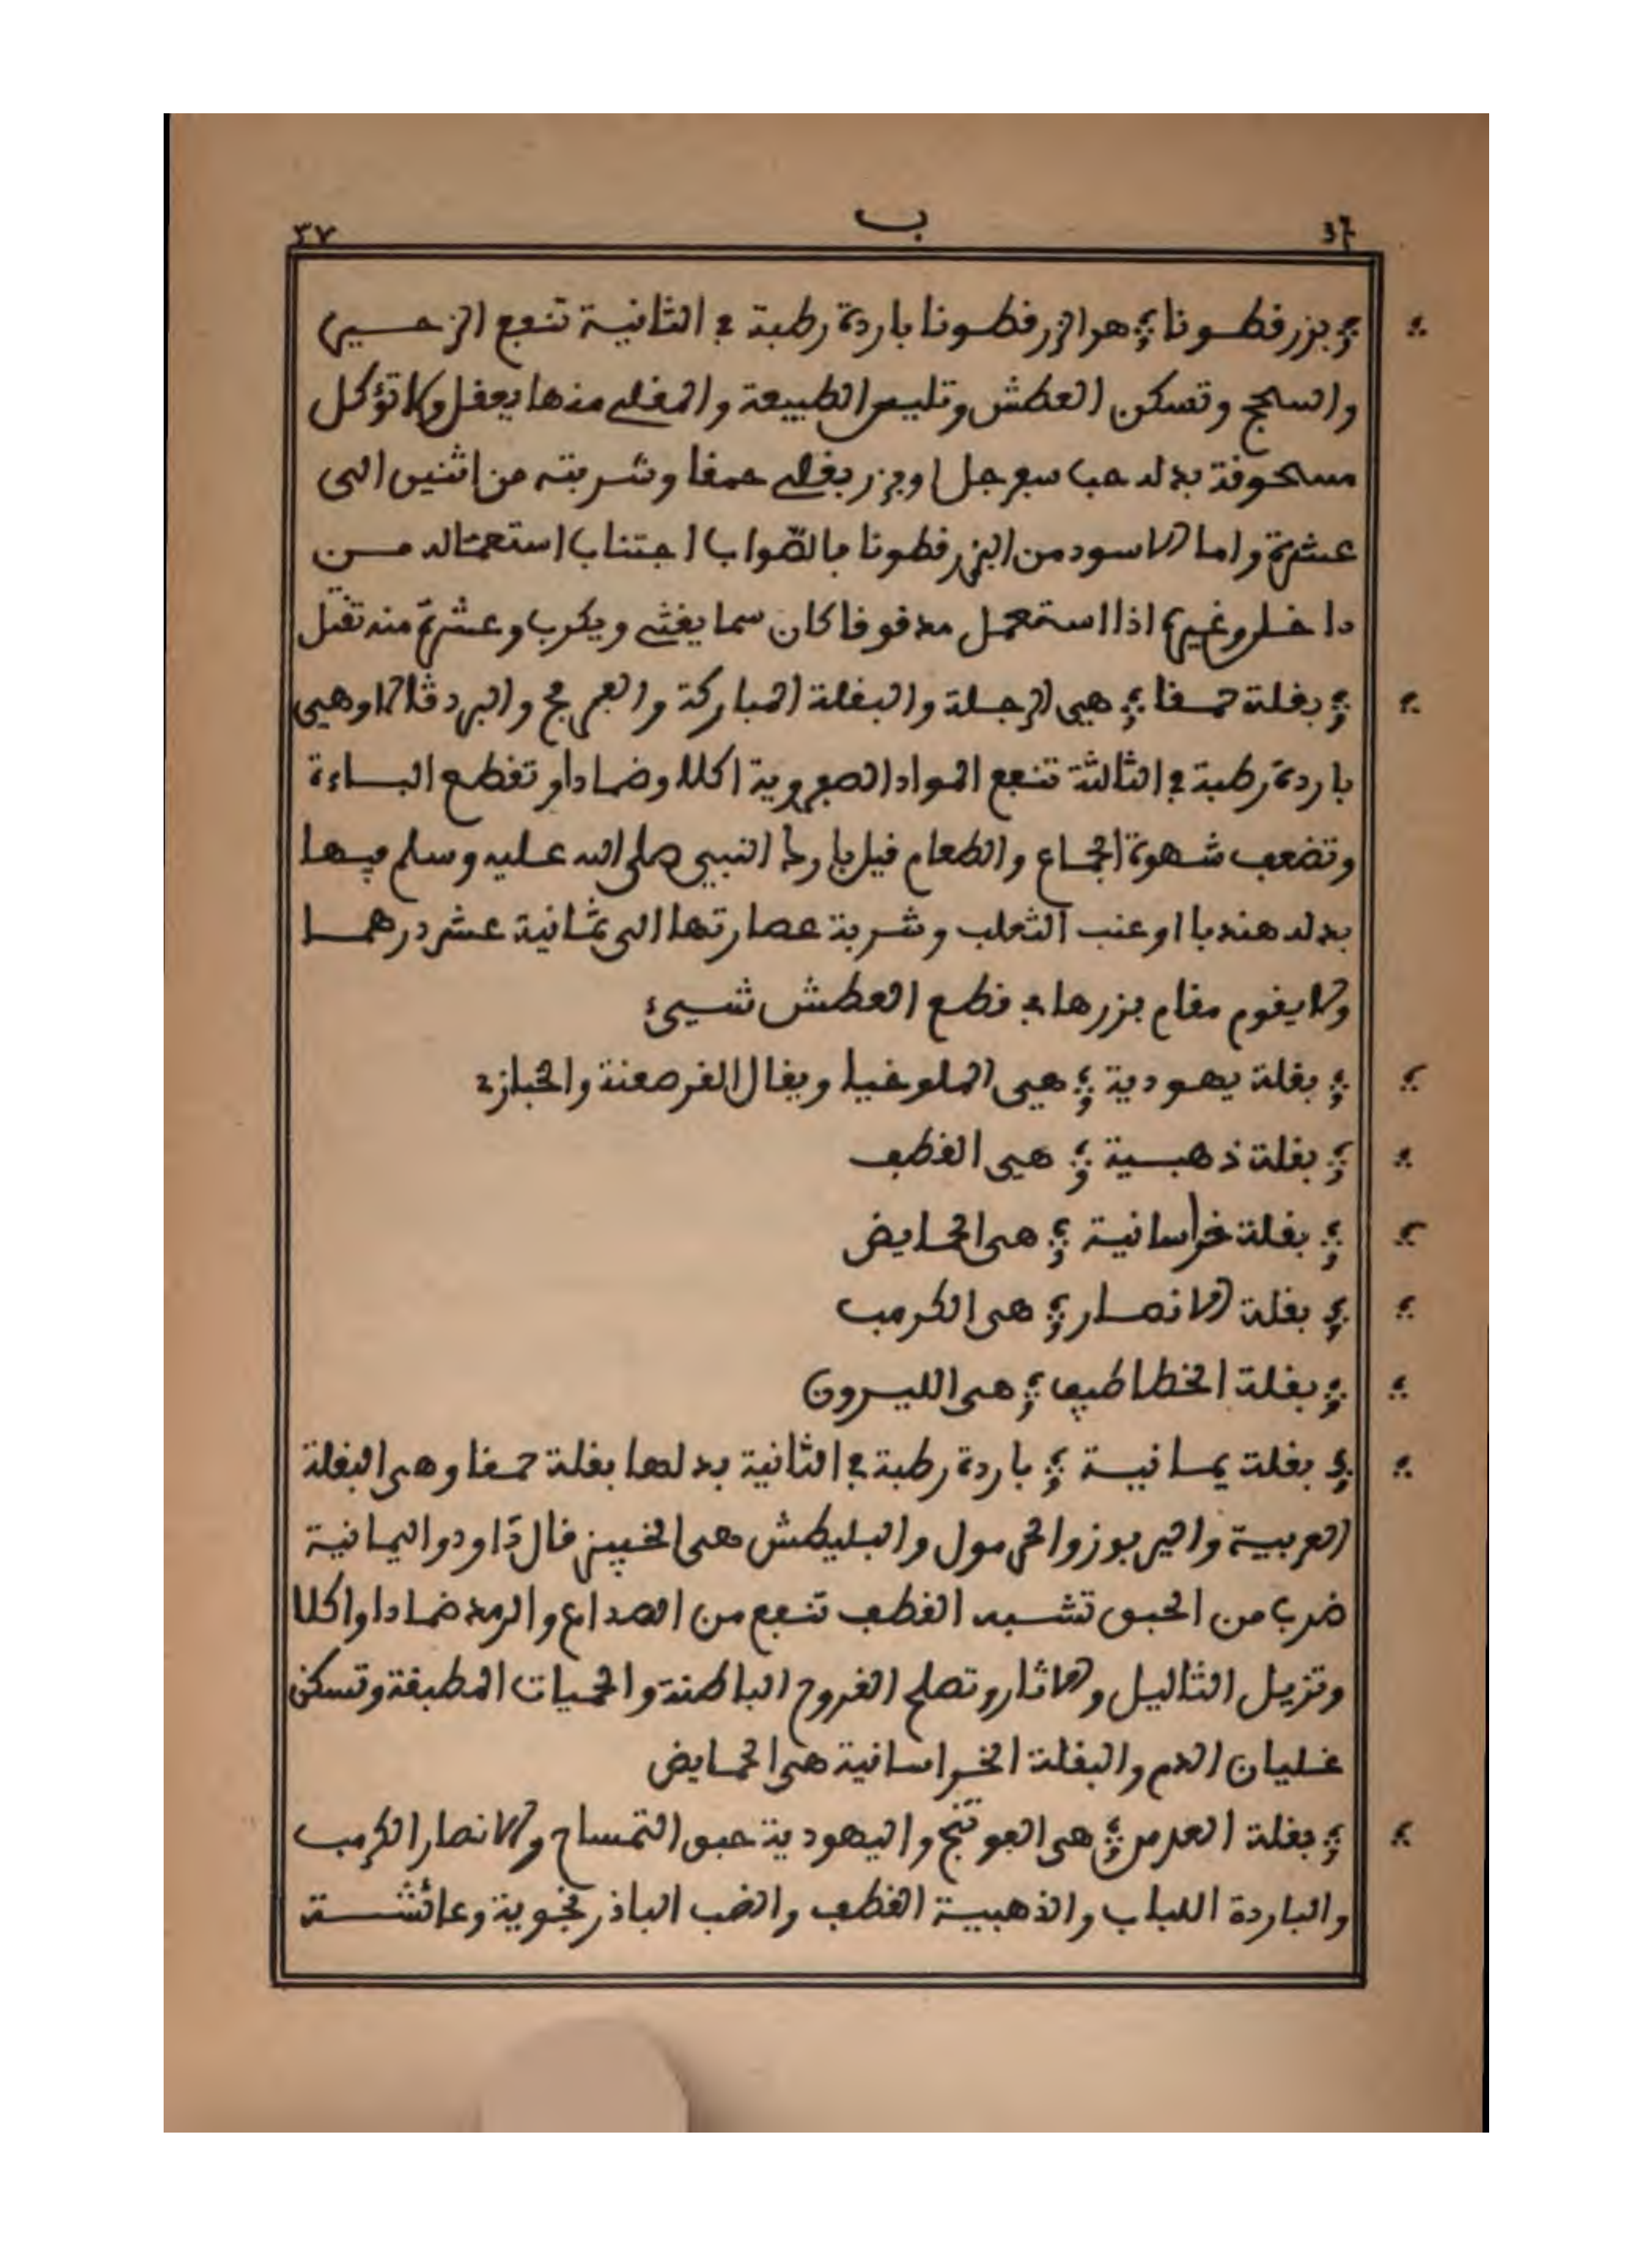 ٣٧ ب 36
بزر قطونا هو الزرقطونا باردة رطبة في الثانية تنفع الزحير
والسحج وتسكن العطش وتلين الطبيعة والمقلي منها يعقل ولا تؤكل
مسحوقة بدله حب سفرجل او بزر بقلة حمقا وشربته من اثنين الى
عشرة واما الاسود من البزرقطونا فالصواب اجتناب استعماله من
داخل وغيره اذا استعمل مدقوقا كان سما يغثي ويكرب وعشرة منه تقتل
بقلة حمقا هي الرجلة والبقلة المباركة والفرفج والبردقالا وهي
باردة رطبة في الثالثة تنفع المواد الصفروية اكلا وضمادا وتقطع الباءة
وتضعف شهوة الجماع والطعام قيل بارك النبي صلى الله عليه وسلم فيها
بدله هندبا او عنب الثعلب وشربة عصارتها الى ثمانية عشر درهما
ولا يقوم مقام بزرها في قطع العطش شيئ
بقلة يهودية هي الملوخيا ويقال القرصعنة والخبازي
بقلة ذهبية هي القطف
بقلة خراسانية هي الحمايض
بقلة الانصار هي الكرمب
بقلة الخطاطيف هي الليرون
بقلة يمانية باردة رطبة في الثانية بدلها بقلة حمقا وهي البقلة
العربية واليربوز والجرمول والبليطش هي الخبيز قال داود واليمانية
ضرب من الحبق تشبه القطف تنفع من الصداع والرمد ضمادا واكلا
وتزيل الثاليل والاثار وتصلح القروح الباطنة والحميات المطبقة وتسكن
غليان الدم والبقلة الخراسانية هي الحمايض
بقلة العدس هي الفوتنج واليهودية حبق التمساح والانصار الكرمب
والباردة اللباب والذهبية القطف والضب الباذرنجوية وعائشة